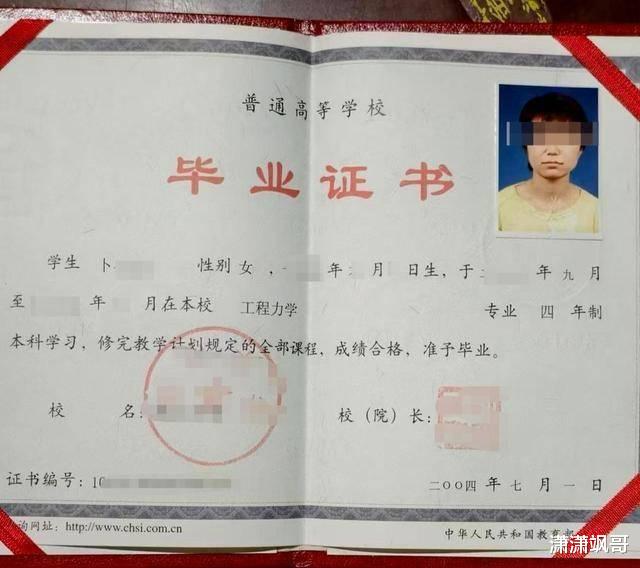 普通高等学校
毕业证书
学生 卜 性别 女, 年 月 日生,于 年 九 月
至 年 月在本校 工程力学 专业 四 年制
本科学习,修完教学计划规定的全部课程,成绩合格,准予毕业。
校 名: 校(院)长:
证书编号:10 二〇〇四 年 七 月 一 日
询网址:http://www.chsi.com.cn 中华人民共和国教育部
潇潇飒哥